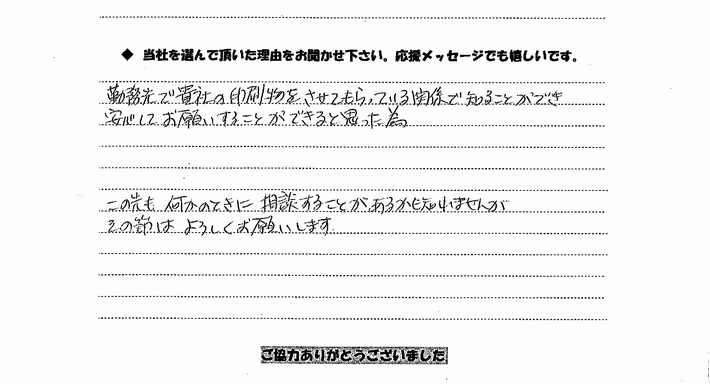 ◆ 当社を選んで頂いた理由をお聞かせ下さい。応援メッセージでも嬉しいです。
勤務先で貴社の印刷物をさせてもらっている関係で知ることができ
安心してお願いすることができると思った為
この先も 何かのときに 相談することが、あるかも知れませんが
その節は よろしくお願いします
ご協力ありがとうございました